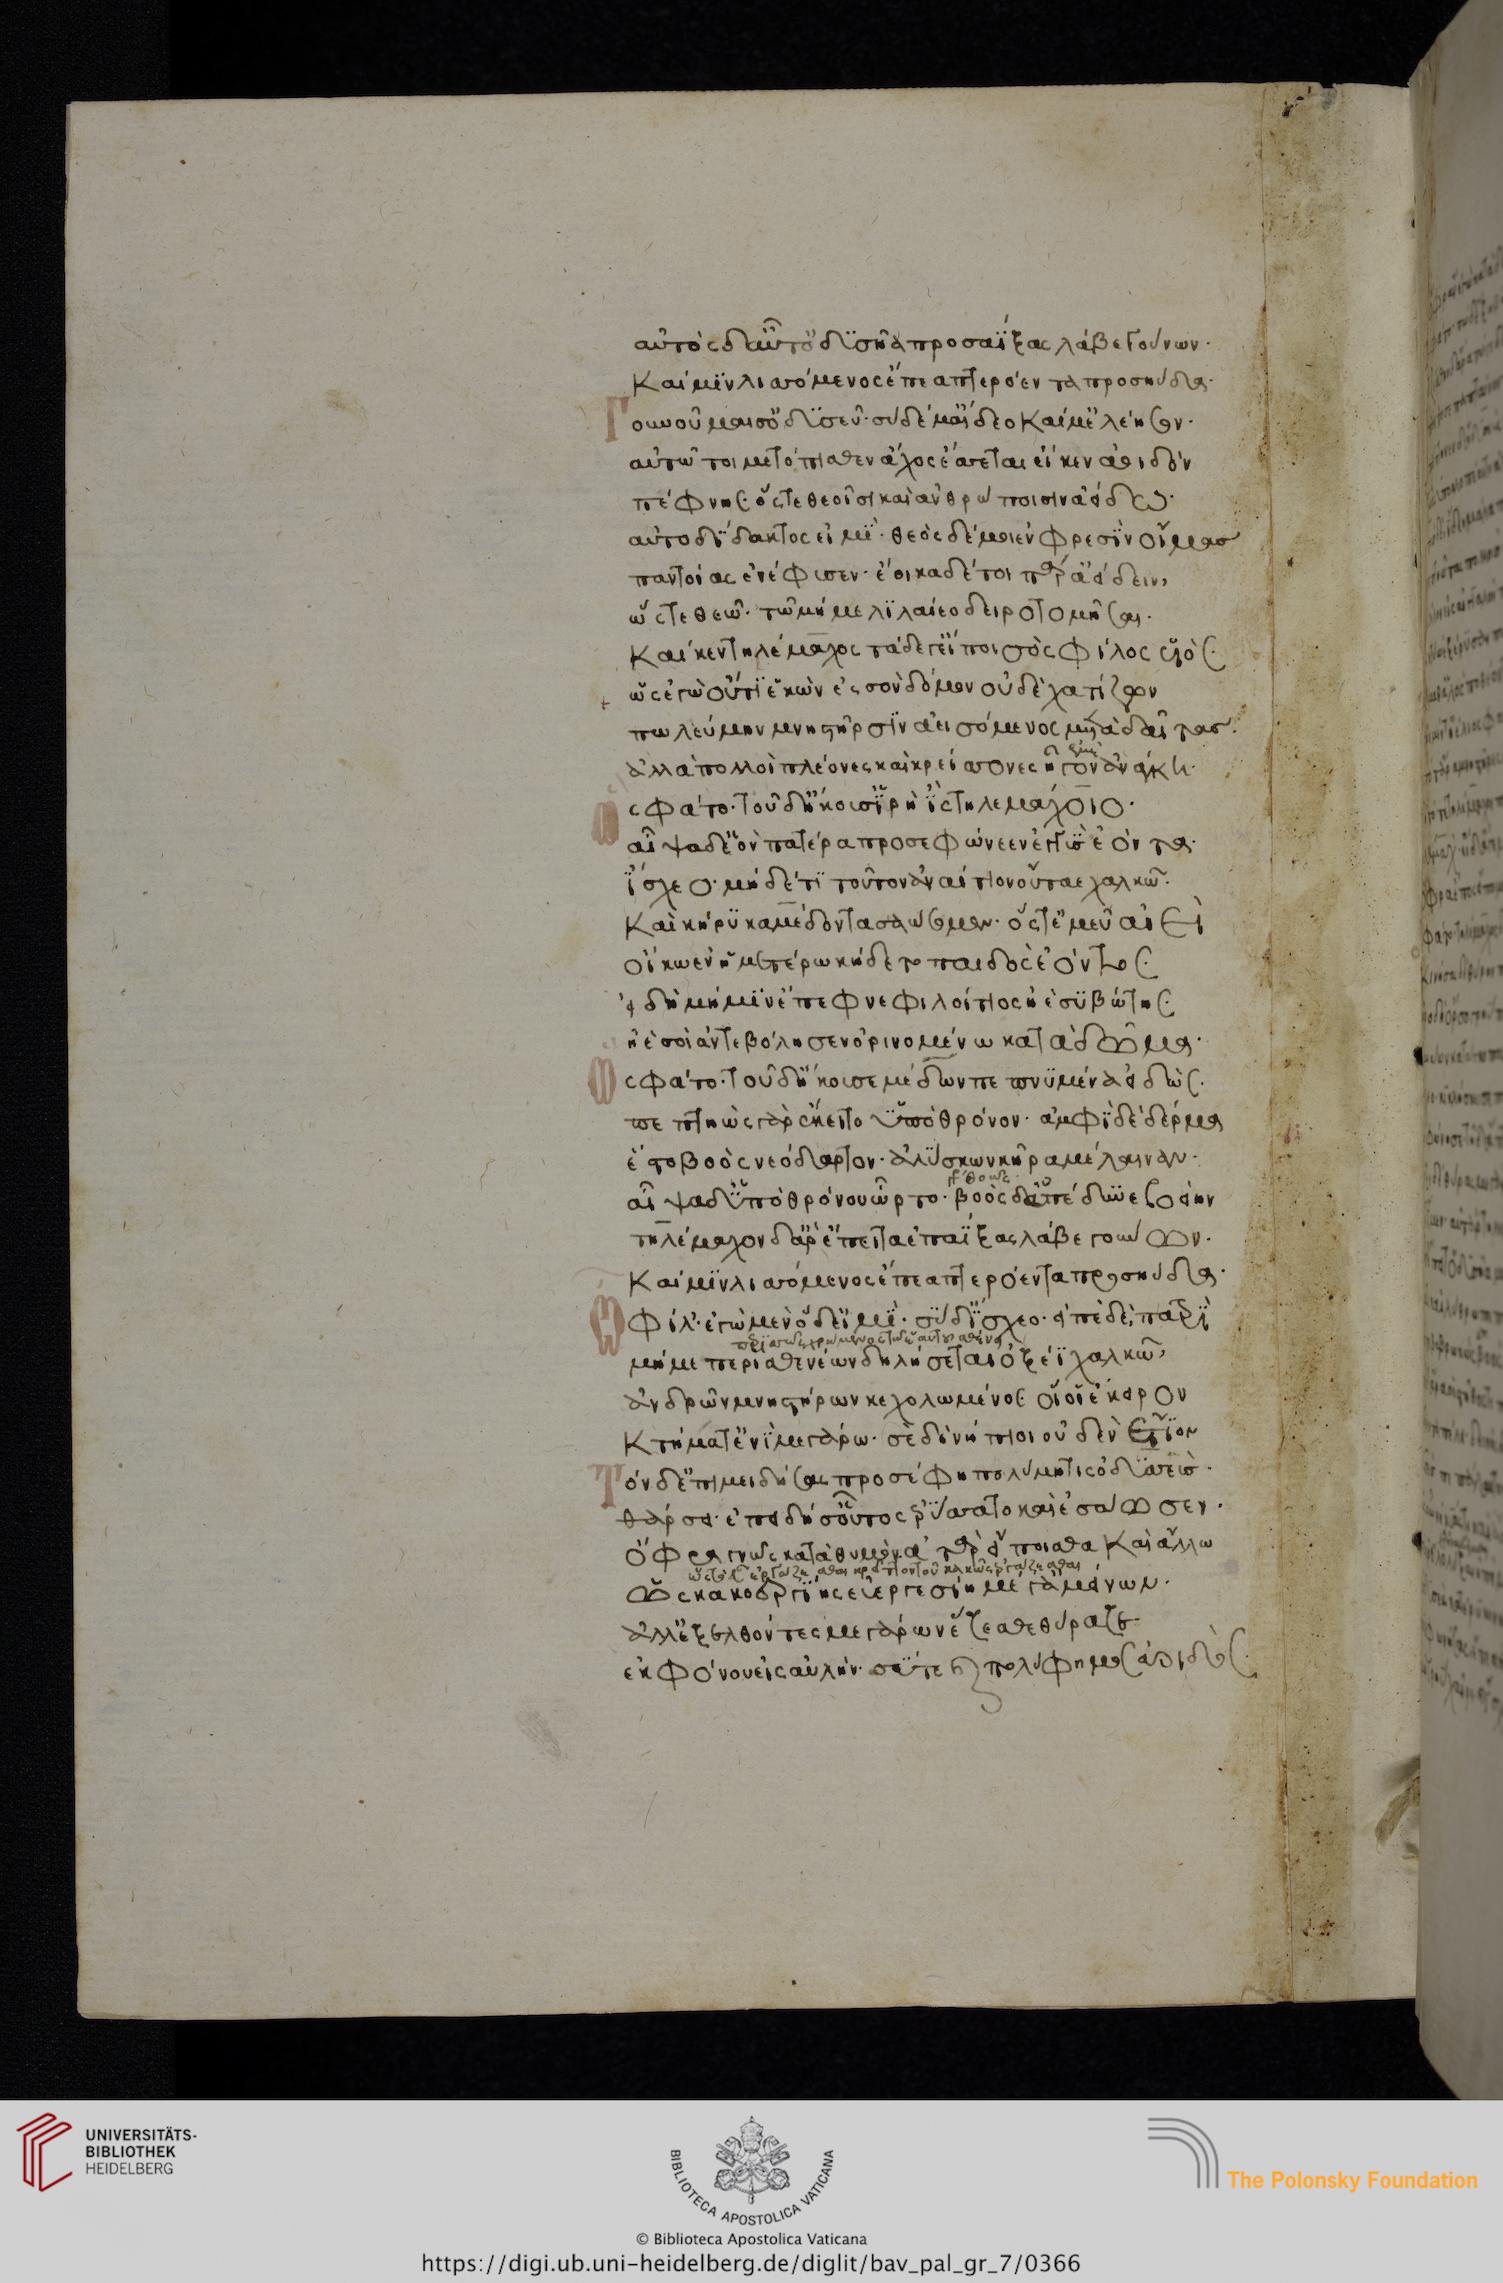 αὐτὸς δ' αὖτ' ὀδυσῆα προσαΐξας λάβε γούνων·
Καί μιν λισσόμενος ἔπεα πτερόεντα προσηύδα·
Γουνοῦμαι σ' ὀδυσεῦ· σὺ δέ μ' αἴδεο καί μ' ἐλέησον·
αὐτῶ τοι μετόπισθεν ἄχος ἔσσεται εἴ κεν ἀοιδὸν
πέφνης· ὅς τε θεοῖσι καὶ ἀνθρώποισιν ἀείδω·
αὐτοδίδακτος εἰμί· θεὸς δέ μοι ἐν φρεσὶν οἴμας
παντοίας ἐνέφυσεν· ἔοικα δέ τοι παραείδειν,
ὥς τε θεῶ· τῶ μή με λιλαίεο δειροτομῆσαι·
Καί κεν τηλέμαχος τάδε γ' εἴποι σὸς φίλος υἱὸς·
ὡς ἐγὼ οὔτι ἑκὼν ἐς σὸν δόμον οὐδὲ χατίζων
πωλεύμην μνηστῆρσιν ἀεισόμενος μετὰ δαῖτας·
ἀλλὰ πολλοὶ πλέονες καὶ κρείσσονες ἦγον ἀνάγκη·
Ὣς φάτο· τοῦ δ' ἤκουσ' ἱερὴ ἲς τηλεμάχοιο·
αἶψα δ' ἑὸν πατέρα προσεφώνεεν ἐγγὺς ἐόντα·
ἴσχεο· μηδέ τι τοῦτον ἀναίτιον οὔταε χαλκῶ·
Καὶ κήρυκα μέδοντα σαώσομεν· ὅς τέ μευ αἰεὶ
οἴκω ἐν ἡμετέρω κήδετο παιδὸς ἐόντος·
εἰ δὴ μή μιν ἔπεφνε φιλοίτιος ἠὲ συβώτης·
ἠὲ σοὶ ἀντεβόλησεν ὀρινομένω κατὰ δῶμα·
Ὣς φάτο· τοῦ δ' ἤκουσε μέδων πεπνυμένα εἰδὼς·
πεπτηὼς γὰρ ἔκειτο ὑπὸ θρόνον· ἀμφὶ δὲ δέρμα
ἕστο βοὸς νεόδαρτον· ἀλύσκων κῆρα μέλαιναν·
αἶψα δ' ὑπὸ θρόνου ὦρτο· βοὸς δ' ἀπέδυε βοείην
τηλέμαχον δ' ἄρ' ἔπειτα ἐπαΐξας λάβε γούνων·
Καί μιν λισσόμενος ἔπεα πτερόεντα προσηύδα·
Ὦ φίλ'· ἐγὼ μὲν ὅδ' εἰμί· σὺ δ' ἴσχεο· εἰπὲ δὲ πατρὶ
μή με περισθενέων δηλήσεται ὀξέϊ χαλκῶ,
ἀνδρῶν μνηστήρων κεχολωμένος οἵ οἱ ἔκειρον
Κτήματ' ἐνὶ μεγάρω· σὲ δὲ νήπιοι οὐδὲν ἔτιον
Τὸν δ' ἐπιμειδήσας προσέφη πολύμητις ὀδυσσεύς·
θάρσει· ἐπειδή σ' οὗτος ἐρύσσατο καὶ ἐσάωσεν·
ὄφρα γνῶς κατὰ θυμὸν ἀτὰρ εἴποισθα καὶ ἄλλω
ὡς κακοεργίης εὐεργεσίη μέγ' ἀμείνων·
ἀλλ' ἐξελθόντες μεγάρων ἕζεσθε θύραζε
ἐκ φόνου εἰς αὐλὴν· σύ τε καὶ πολύφημος ἀοιδὸς·
UNIVERSITÄTS-
BIBLIOTHEK
HEIDELBERG
BIBLIOTECA APOSTOLICA VATICANA
The Polonsky Foundation
© Biblioteca Apostolica Vaticana
https://digi.ub.uni-heidelberg.de/diglit/bav_pal_gr_7/0366